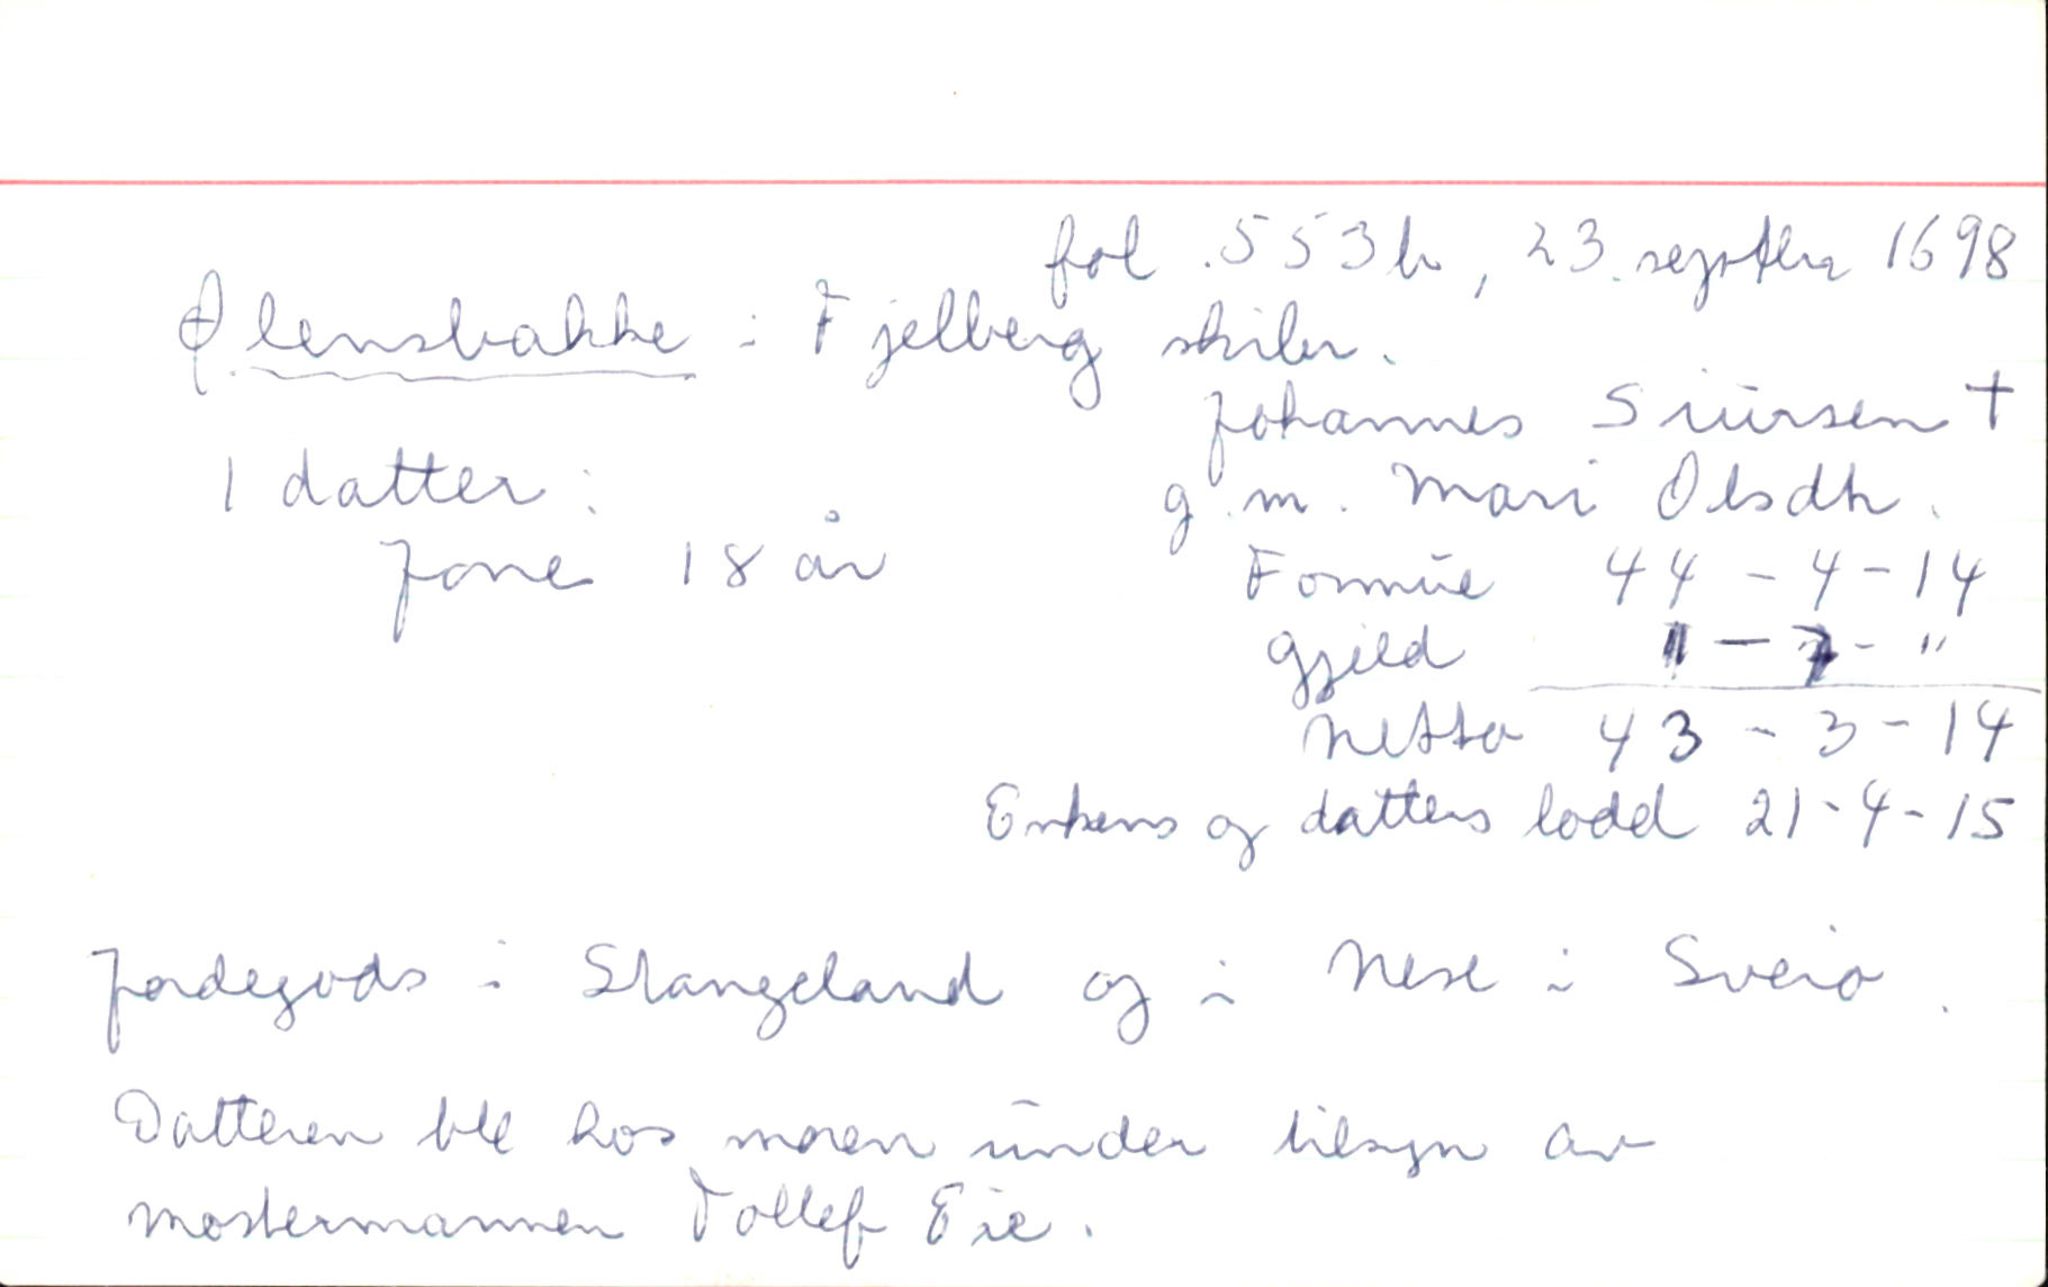 fol. 553b, 23. septbr 1698
Ølensbakke i Fjelberg skibr.
Johannes Siursen †
1 datter:
g.m. Mari Olsdtr.
Jone 18 år
Formue 44 - 4 - 14
Gjeld 1 - 1 - "
Netto 43 - 3 - 14
Enkens og datters lodd 21 - 4 - 15
Jordegods i Stangeland og i Nese i Sveio.
Datteren ble hos moren under tilsyn av
mostermannen Tollef Eie.